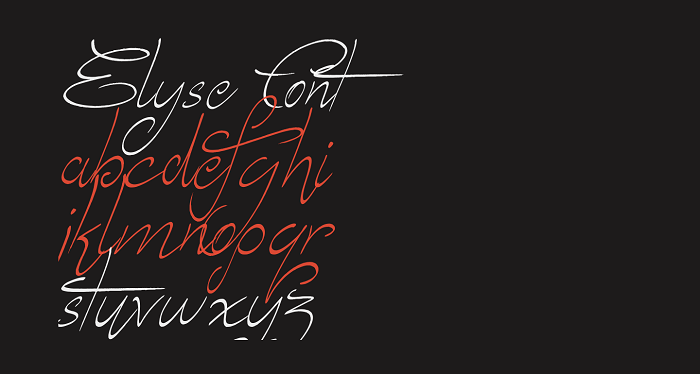 Elyse font
abcdefghi
jklmnopqr
stuvwxyz